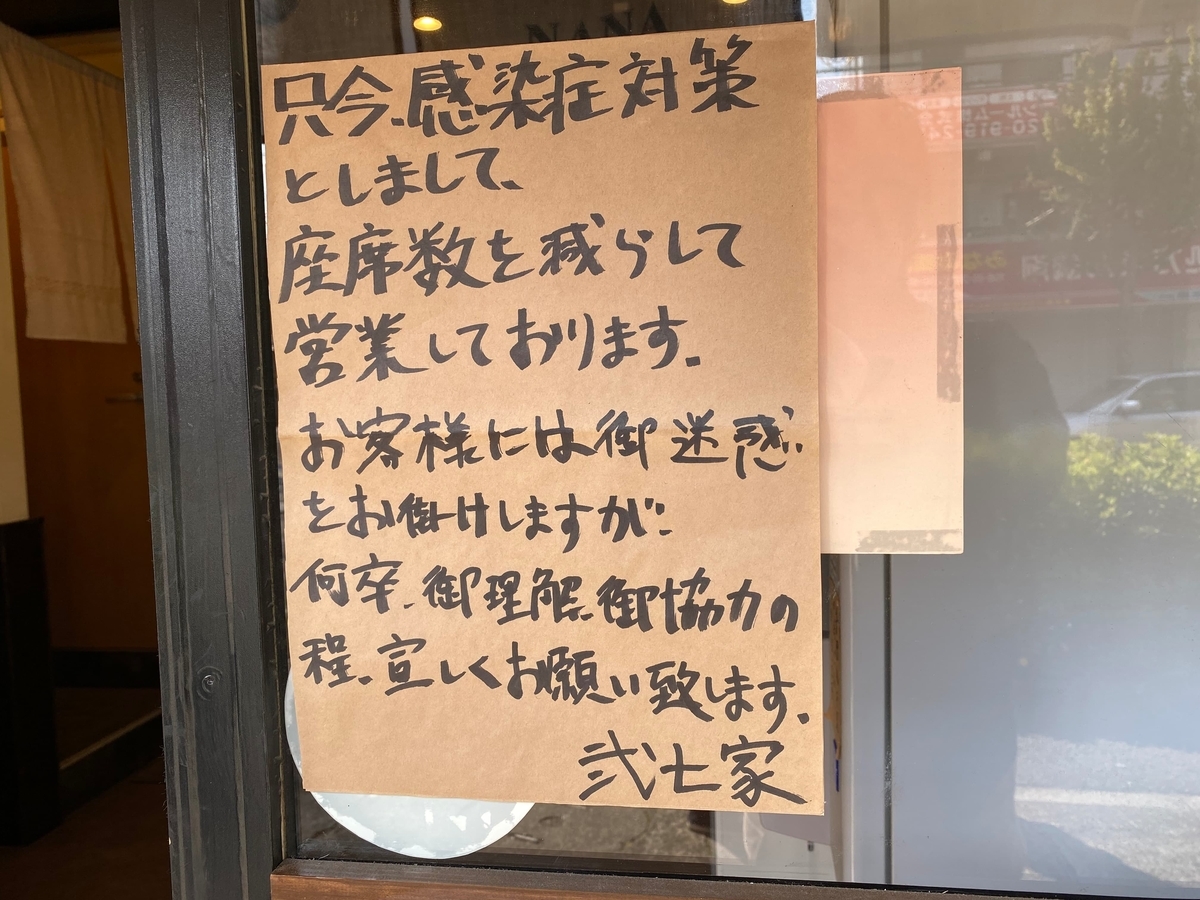 NANA
只今、感染症対策
としまして、
座席数を減らして
営業しております。
お客様には御迷惑
をお掛けしますが、
何卒、御理解、御協力の
程、宜しくお願い致します。
弐七家